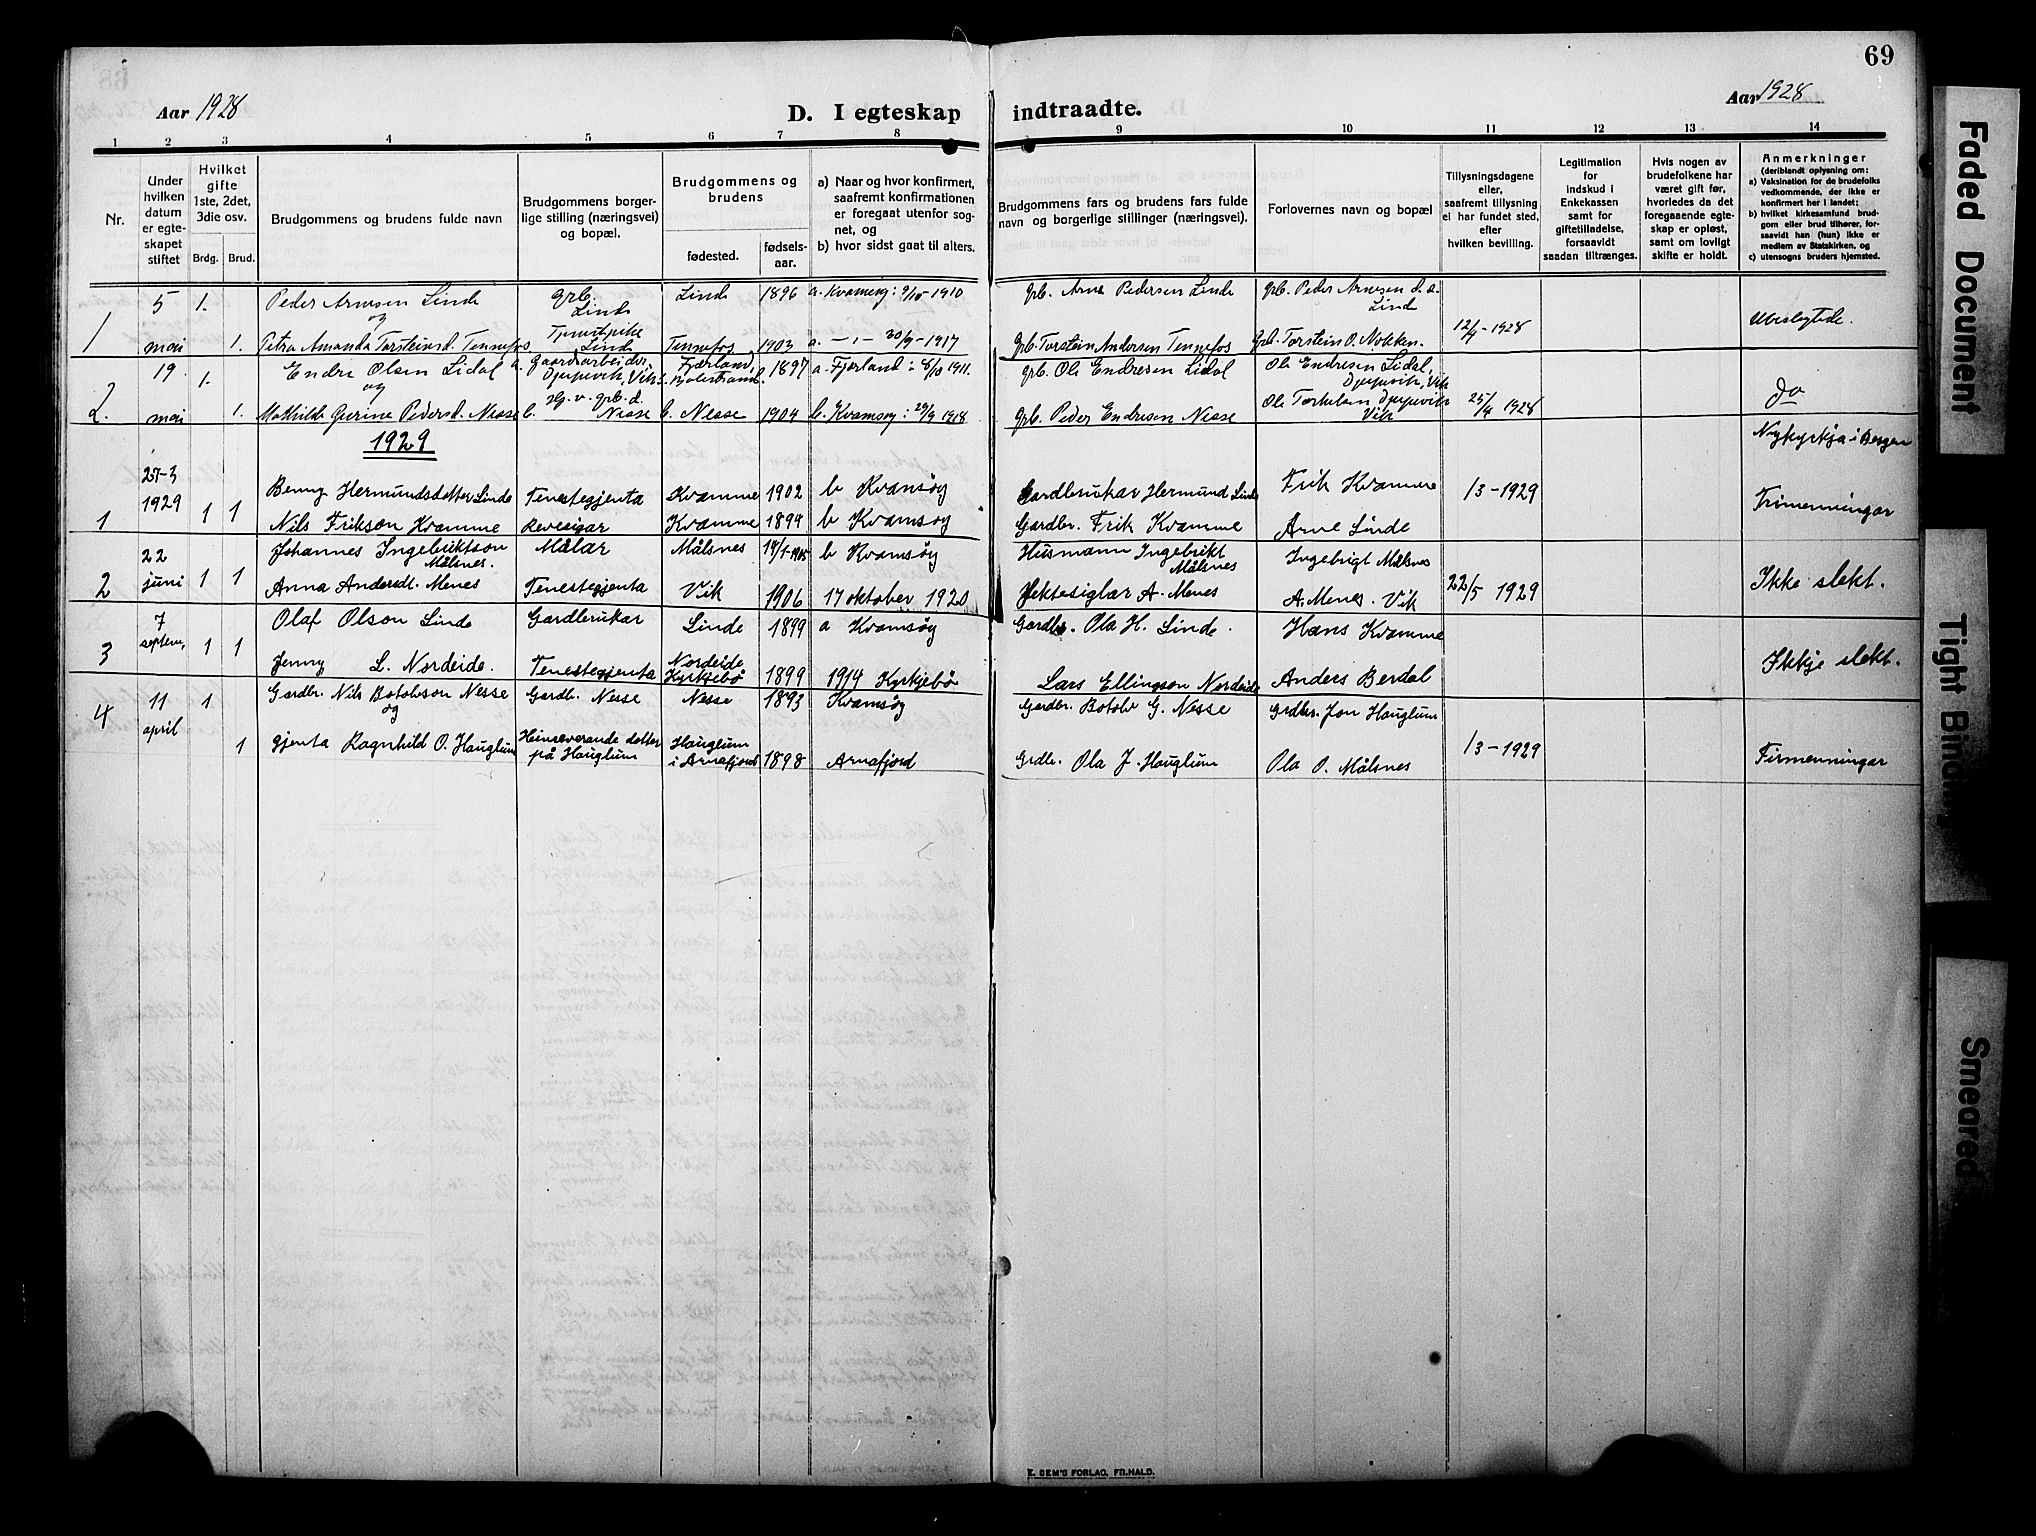 69
Aar 1928
D. I egteskap indtraadte.
Aar 1928
1 2 3 4 5 6 7 8 9 10 11 12 13 14
Nr.
Under hvilken datum er egteskapet stiftet
Hvilket gifte 1ste, 2det, 3die osv.
Brdg. Brud.
Brudgommens og brudens fulde navn
Brudgommens borgerlige stilling (næringsvei) og bopæl.
Brudgommens og brudens
fødested.
fødselsaar.
a) Naar og hvor konfirmert, saafremt konfirmationen er foregaat utenfor sognet, og
b) hvor sidst gaat til alters.
Brudgommens fars og brudens fars fulde navn og borgerlige stillinger (næringsvei).
Forlovernes navn og bopæl
Tillysningsdagene eller, saafremt tillysning ei har fundet sted, efter hvilken bevilling.
Legitimation for indskud i Enkekassen samt for giftetilladelse, forsaavidt saadan tiltrænges.
Hvis nogen av brudefolkene har været gift før, hvorledes da det foregaaende egteskap er opløst, samt om lovligt skifte er holdt.
Anmerkninger
(deriblandt oplysning om:
a) Vaksination for de brudefolks vedkommende, der ikke er konfirmert her i landet;
b) hvilket kirkesamfund brudgom eller brud tilhører, forsaavidt han (hun) ikke er medlem av Statskirken, og
c) utensogns bruders hjemsted.
1 5 mai 1.
Peder Arnesen Linde grb. Linde Linde 1896 a. Kvamsøy: 9/10 1910 grb. Arne Pedersen Linde grb. Peder Arnesen d.e. Linde
og
1. Petra Amanda Torsteinsd. Tennefos Tjenestpike Linde Tennefos 1903 a. – " – 30/9 – 1917 grb. Torstein Andersen Tennefos grb. Torstein O. Nokken. 12/4 – 1928 Ubeslegtede.
2. 19 mai 1.
Endre Olsen Lidal a. Gaardsarbeider, Djupevik, Vik Fjærland, Balestrand. 1897 a. Fjærland: 8/10 1911. grb. Ole Endresen Lidal Ole Endresen Lidal, Djupevik, Vik
og
1. Mathilde Gurine Pedersd. Nesse b. Hj. v. grb.d. Nesse b. Nesse 1904 b. Kvamsøy: 29/9 1918 grb. Peder Endresen Nesse Ole Torkelsen Djupevik Vik 25/4 1928 do
1929
Nykyrkja i Bergen
1 27-3 1929 1 1
Benny Hermundsdotter Linde Tenestegjenta Kvamme 1902 b Kvamsøy Gardbrukar Hermund Linde Erik Kvamme 1/3 – 1929 Trimenningar
Nils Erikson Kvamme Revesigar Kvamme 1894 b Kvamsøy Gardbr. Erik Kvamme Arne Linde
2 22 juni 1 1
Johannes Ingebriktson Målsnes. Målar Målsnes 14/1-1905 b Kvamsøy Husmann Ingebrikt Målsnes Ingebrigt Målsnes
Anna Andersdt. Menes Tenestegjenta Vik 1906 17 oktober 1920 Jektesiglar A. Menes A. Menes. Vik 22/5 1929 Ikke slekt.
3 7 septem, 1 1
Olaf Olson Linde Gardbrukar Linde 1899 a Kvamsøy Gardbr. Ola H. Linde. Hans Kvamme
Jenny L. Nordeide. Tenestegjenta Nordeide Kyrkjebø 1899 1914 Kyrkjebø Lars Ellingson Nordeide Anders Berdal Ikkje slekt.
4 11 april 1
Gardbr. Nils Botolvson Nesse Gardb. Nesse Nesse 1893 Kvamsøy Gardbr. Botolv G. Nesse Grdbr. Jon Hauglum
og
1 gjenta Ragnhild O. Hauglum Heimeverande dotter på Hauglum Hauglum i Arnafjord 1898 Arnafjord Grdbr. Ola J. Hauglum Ola O. Målsnes 1/3 – 1929 Firmenningar
E. SEM'S FORLAG, FR.HALD.
Faded Document
Tight Binding
Smeared